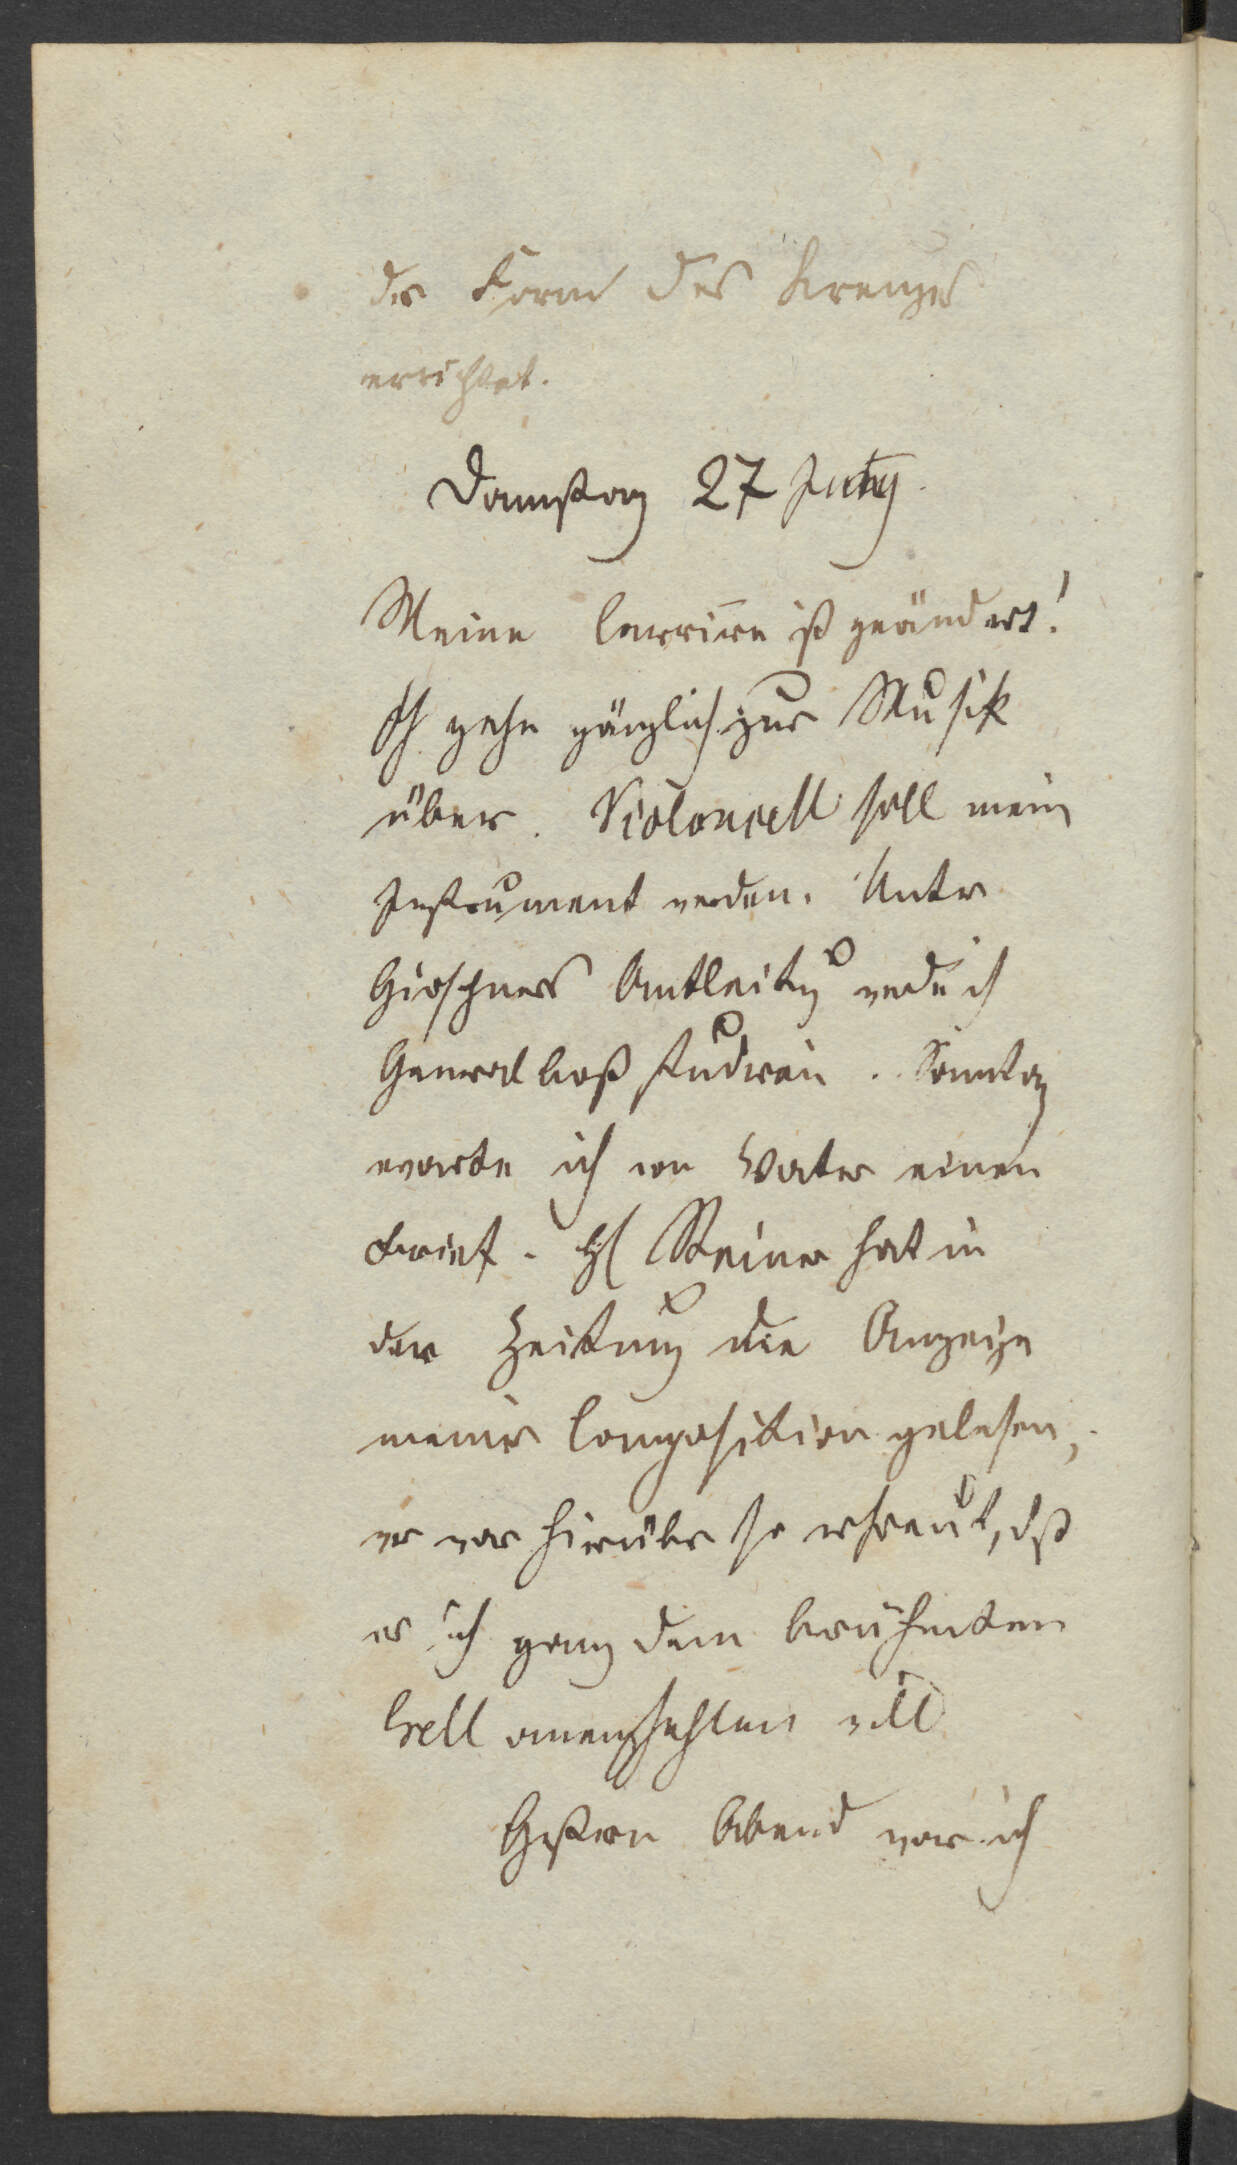 der Form des Kreuzes
errichtet.
Samstag 27 July
Meine Carriere ist geändert!
Ich gehe gänzlich zur Musik
über. Violoncell soll mein
Instrument werden. Unter
Girschners Anleitung werde ich
Generalbaß studiren. Sonntag
erwarte ich von Vater einen
Brief. H Steiner hat in
der Zeitung die Anzeige
meiner Composition gelesen,
er war hierüber so erfreut, dß
er ich ganz dem berühmten
Hell anempfehlen will
Gestern Abend war ich